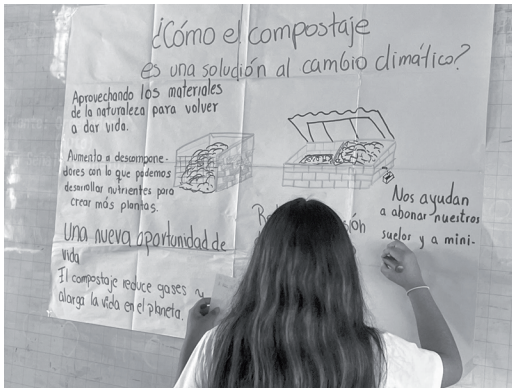 ¿Cómo el compostaje
es una solución al cambio climático?
Aprovechando los materiales
de la naturaleza para volver
a dar vida.
Aumenta a descompone-
dores con lo que podemos
desarollar nutrientes para
crear más plantas.
Una nueva oportunidad de
vida
El compostaje reduce gases
alarga la vida en el planeta.
Nos ayudan
a abonar nuestros
suelos y a mini-